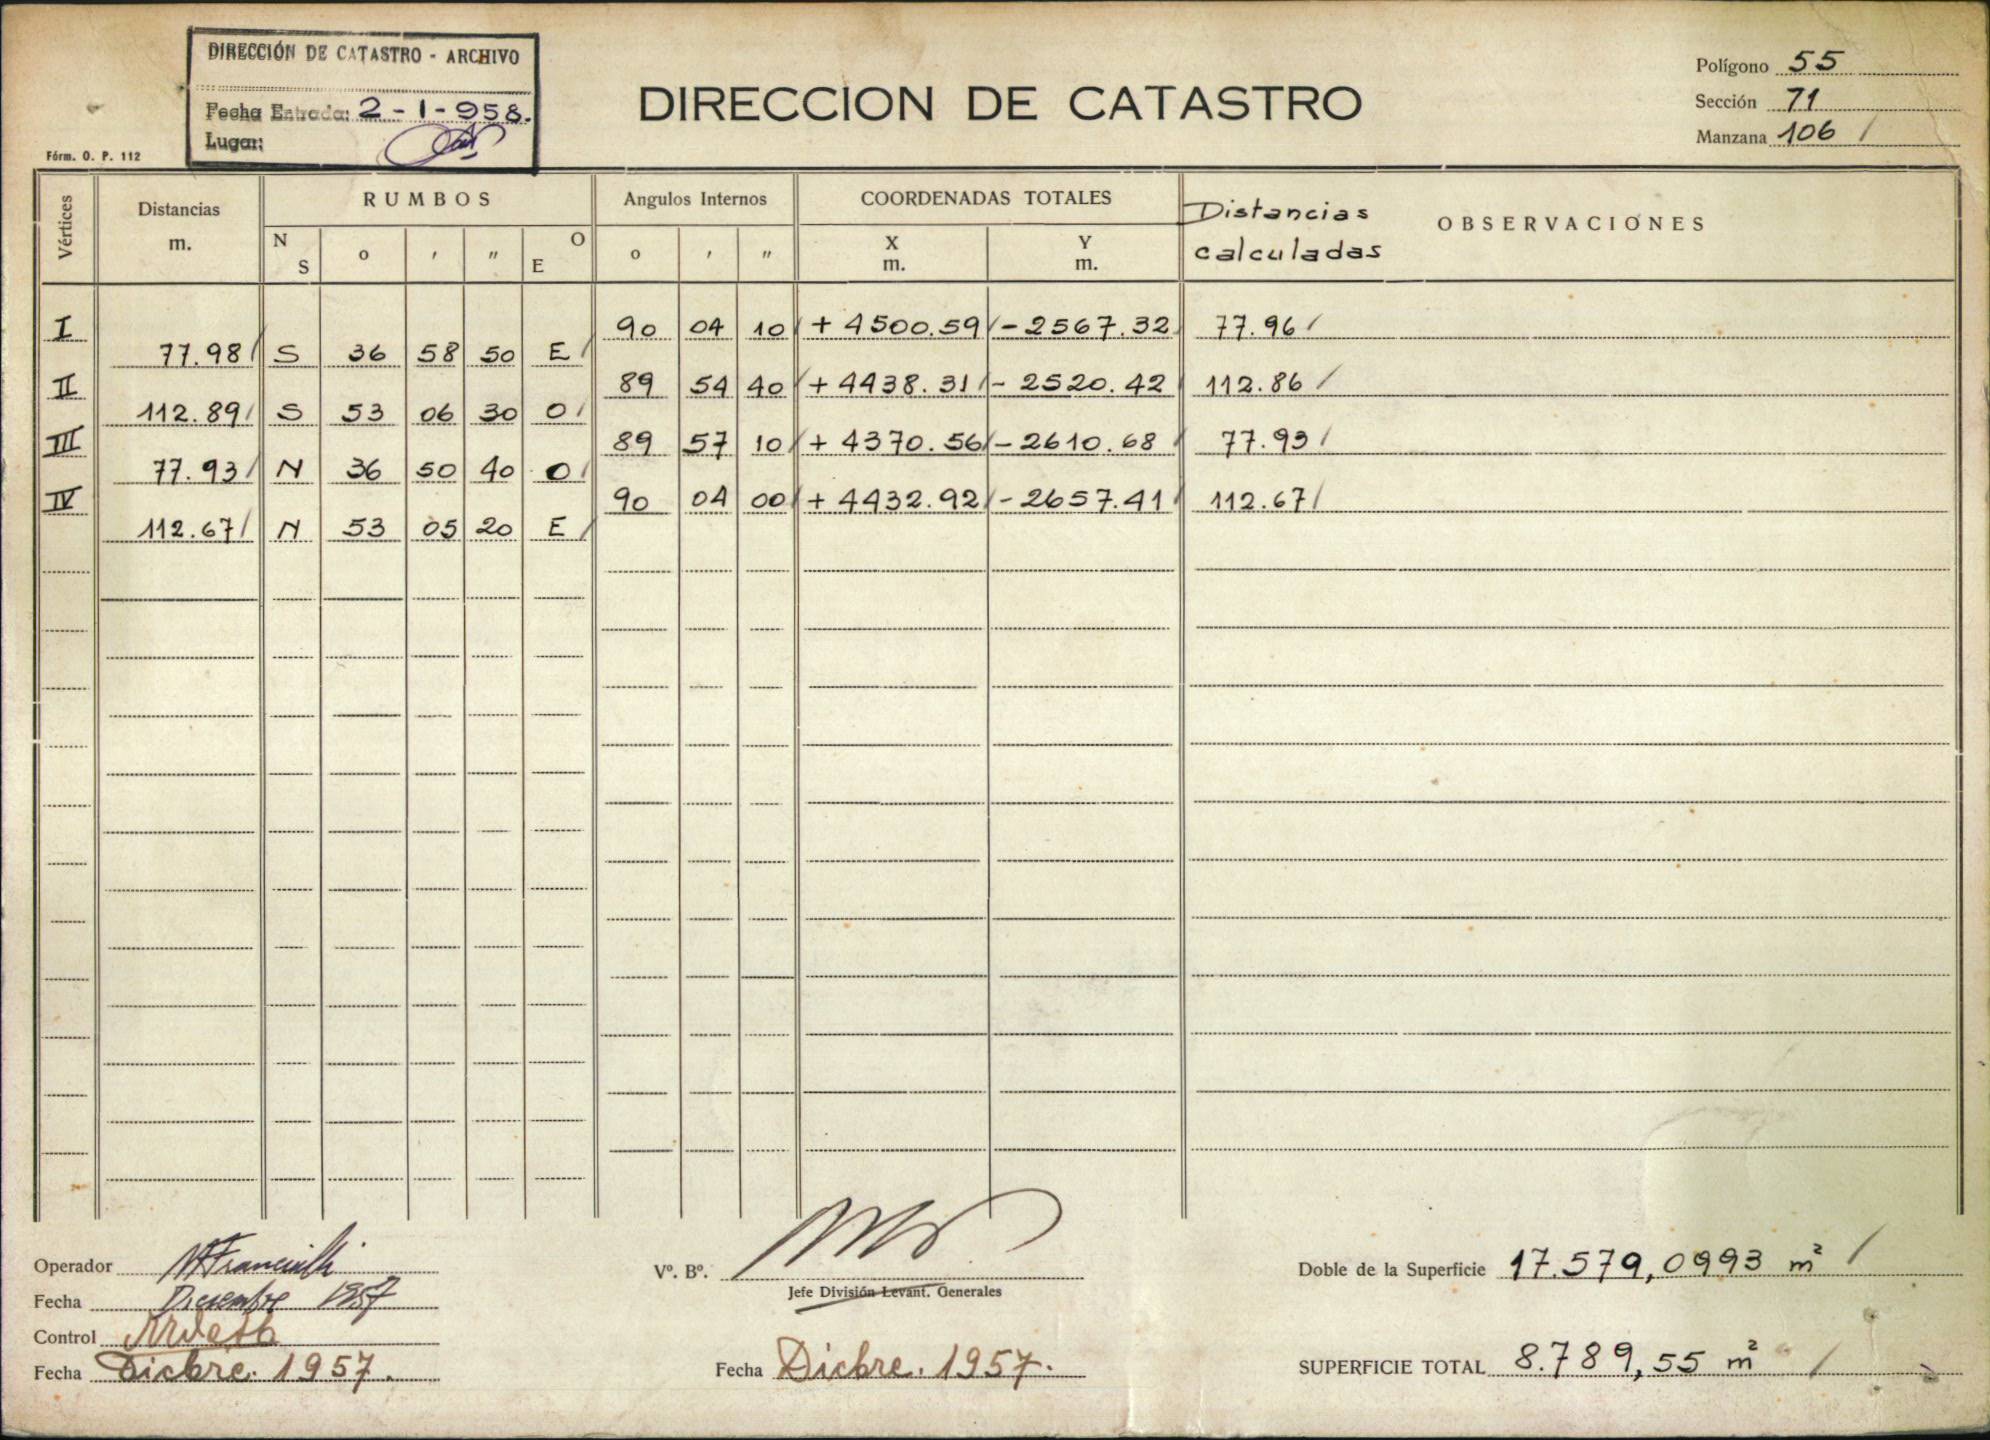 DIRECCIÓN DE CATASTRO - ARCHIVO
Fecha Entrada: 2-1-958.
Lugar:
Fórm. O. P. 112
DIRECCION DE CATASTRO
Polígono 55
Sección 71
Manzana 106 /
Vértices Distancias m. RUMBOS Angulos Internos COORDENADAS TOTALES Distancias calculadas OBSERVACIONES
N S o ′ ″ O E o ′ ″ X m. Y m.
I 90 04 10 / + 4500.59 / - 2567.32 / 77.96 /
77.98 / S 36 58 50 E /
II 89 54 40 / + 4438.31 / - 2520.42 / 112.86 /
112.89 / S 53 06 30 O /
III 89 57 10 / + 4370.56 / - 2610.68 / 77.93 /
77.93 / N 36 50 40 O /
IV 90 04 00 / + 4432.92 / - 2657.41 / 112.67 /
112.67 / N 53 05 20 E /
Operador
Fecha Diciembre 1957
Control
Fecha Dicbre. 1957.
Vº. Bº.
Jefe División Levant. Generales
Fecha Dicbre. 1957.
Doble de la Superficie 17.579,0993 m² /
SUPERFICIE TOTAL 8.789,55 m² /